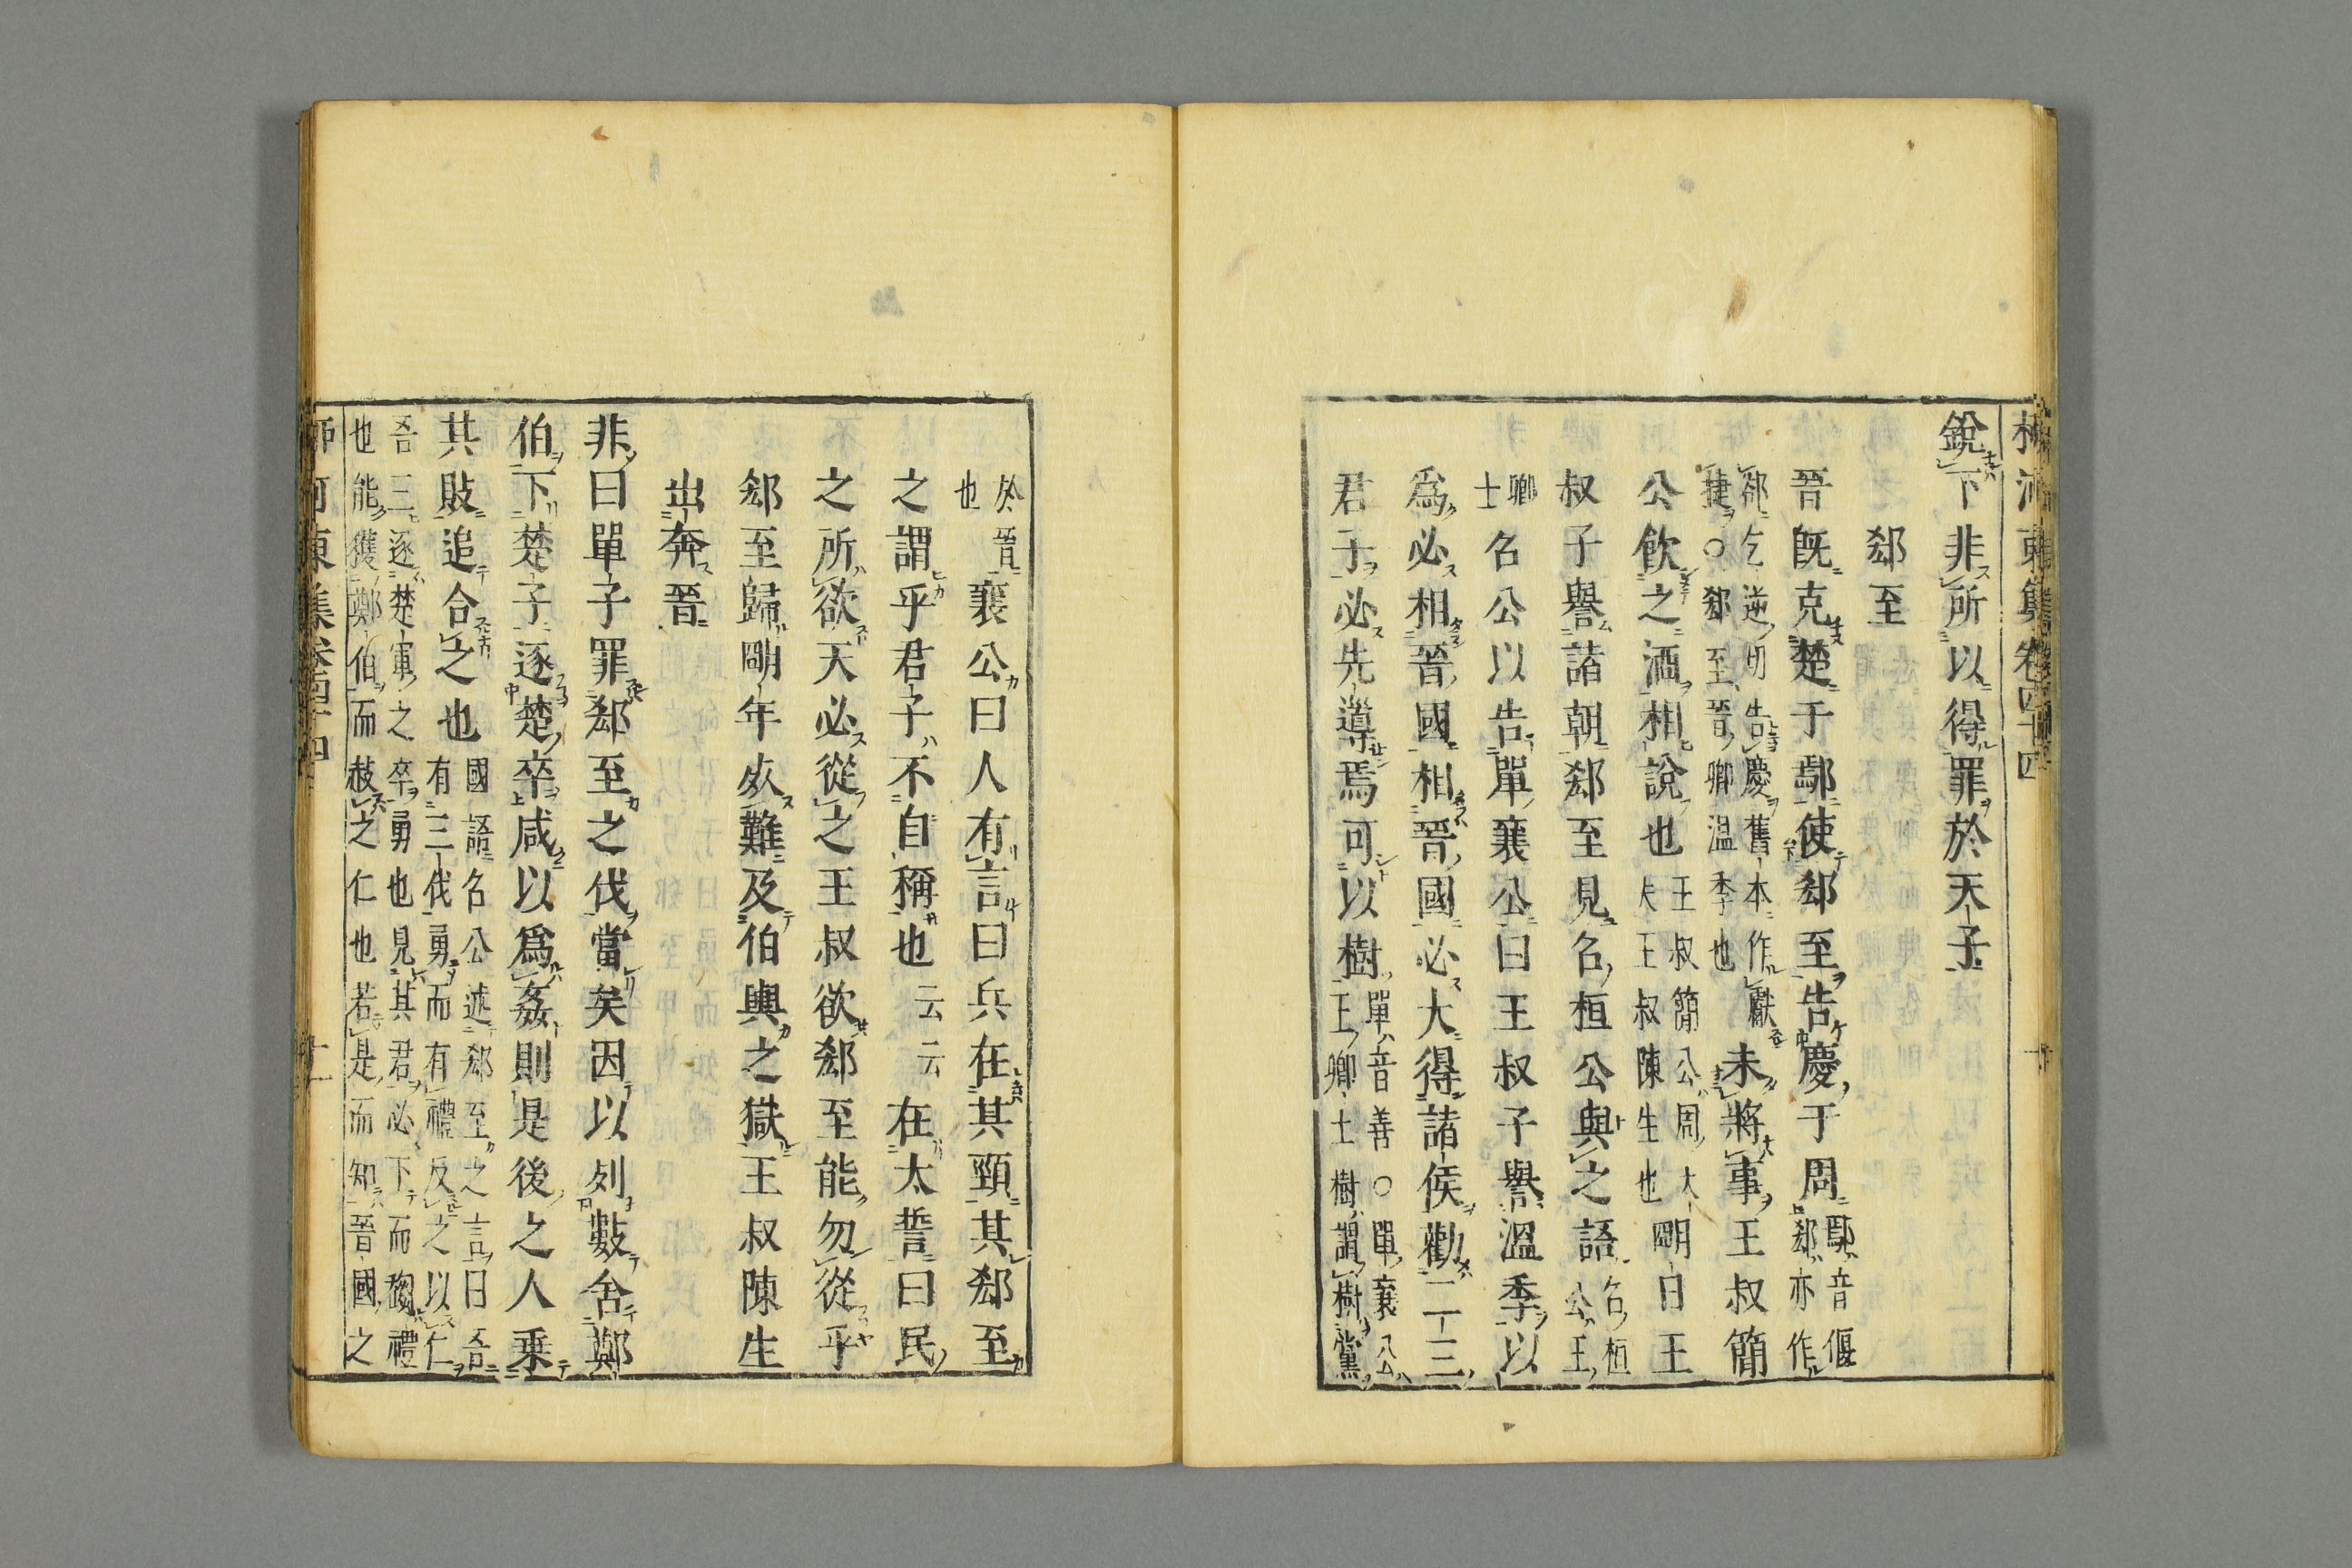 柳河東集卷四十四
銳下非所以得罪於天子
郄至
晉既克楚于鄢使郄至告慶于周鄢音偃郄亦作
郤乞逆切告慶舊本作獻捷○郄至晉卿溫季也未將事王叔簡
公飲之酒相說也王叔簡公周大夫王叔陳生也明日王
叔子譽諸朝郄至見召桓公與之語召桓公王
卿士召公以告單襄公曰王叔子譽溫季以
爲必相晉國相晉國必大得諸侯勸二三
君子必先導焉可以樹單音善○單襄公王卿士樹謂樹黨
於晉也襄公曰人有言曰兵在其頸其郄至
之謂乎君子不自稱也云云在太誓曰民
之所欲天必從之王叔欲郄至能勿從乎
郄至歸明年死難及伯輿之獄王叔陳生
出奔晉
非曰單子罪郄至之伐當矣因以列數舍鄭
伯下楚子逐楚卒咸以爲姦則是後之人乗
其敗追合之也國語召公述郄至之言曰吾有三伐勇而有禮反之以仁
吾三逐楚軍之卒勇也見其君必下而趨禮
也能獲鄭伯而赦之仁也若是而知晉國之
柳河東集卷四十四
十一